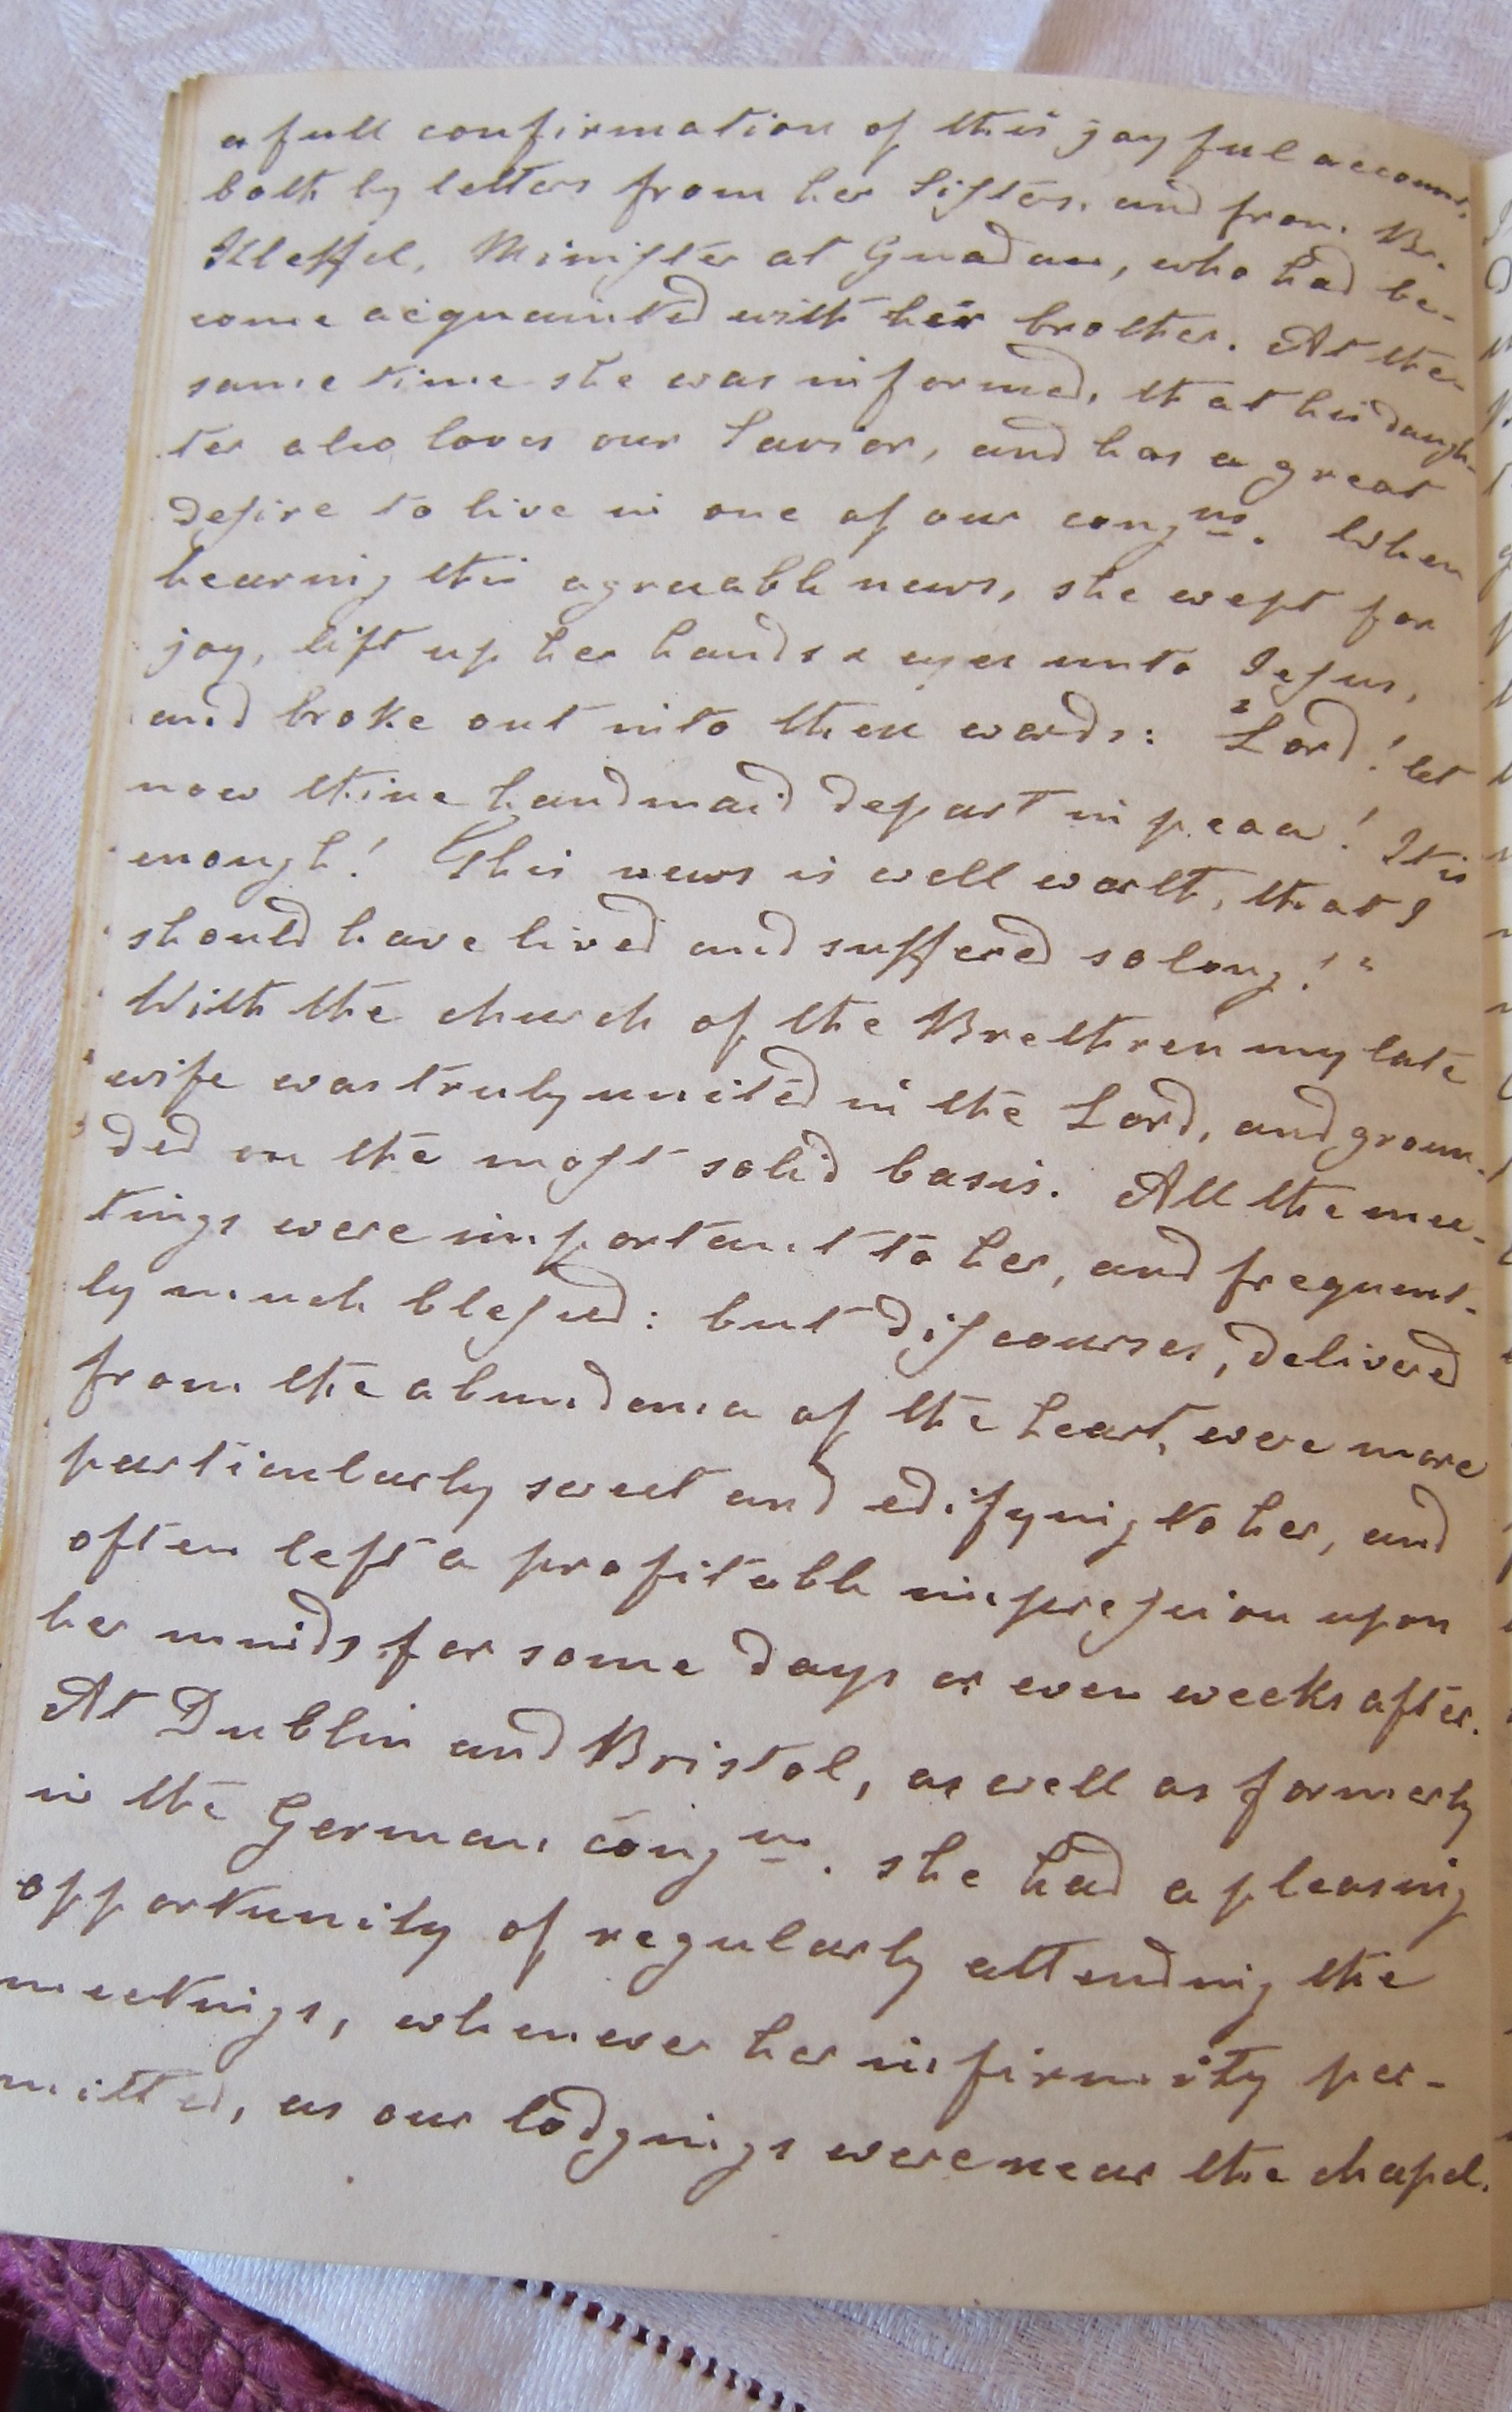 a full confirmation of this joyful account,
both by letters from her Sister, and from Br.
Minister at Gnadau, who had be-
come acquainted with her brother. At the
same time she was informed, that his daugh-
ter also loves our Savior, and has a great
desire to live in one of our congns. When
hearing this agreeable news, she wept for
joy, lift up her hands & eyes unto Jesus,
and broke out into these words: "Lord! let
now thine handmaid depart in peace! It is
enough! This news is well worth, that I
should have lived and suffered so long!"
With the church of the Brethren my late
wife was truly united in the Lord, and groun-
ded on the most solid basis. All the mee-
tings were important to her, and frequent-
ly much blessed: but discourses, delivered
from the abundance of the heart, were more
particularly sweet and edifying to her, and
often left a profitable impression upon
her minds for some days or even weeks after.
At Dublin and Bristol, as well as formerly
in the German congns. she had a pleasing
opportunity of regularly attending the
meetings, whenever her infirmity per-
mitted, as our lodgings were near the chapel.